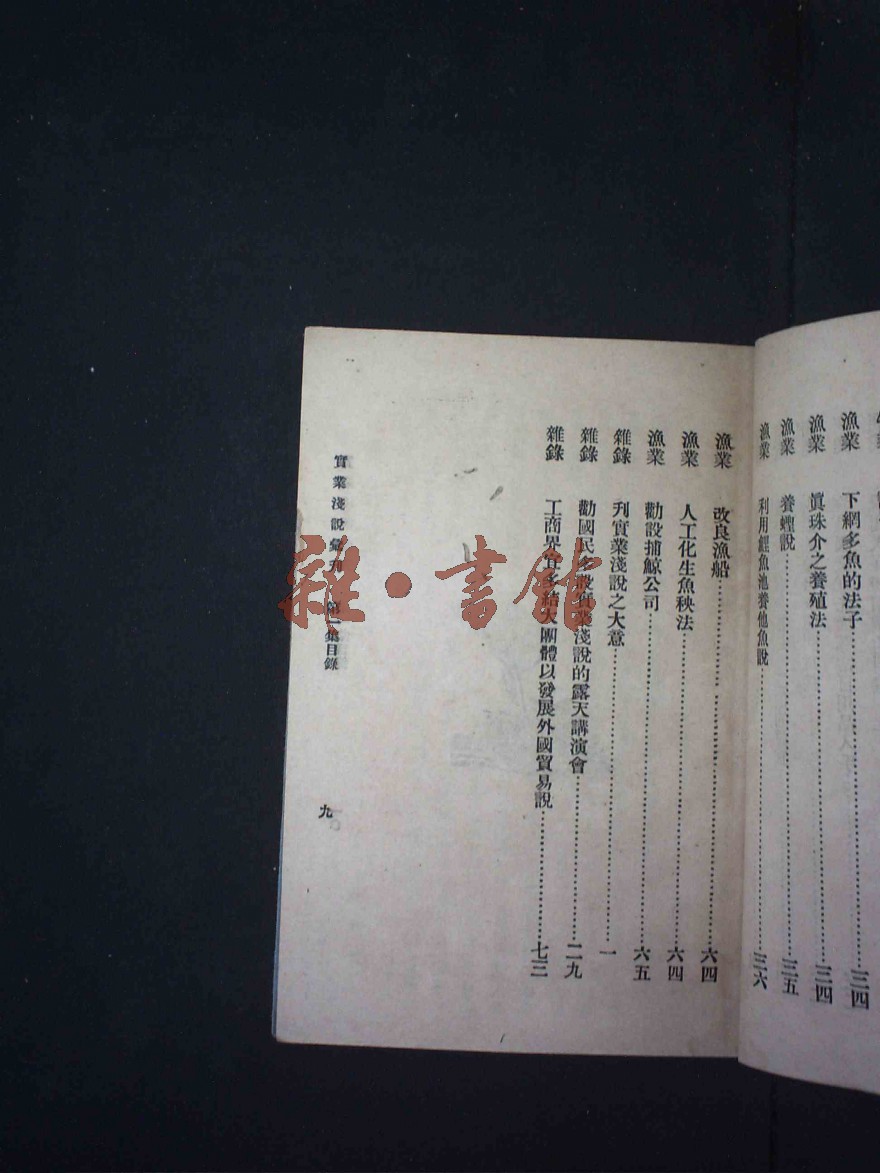 漁業 下網多魚的法子 三四
漁業 眞珠介之養殖法 三四
漁業 養蟶說 三五
漁業 利用鯉魚池養他魚說 三六
漁業 改良漁船 六四
漁業 人工化生魚秧法 六四
漁業 勸設捕鯨公司 六五
雜錄 刋實業淺說之大意 一
雜錄 勸國民多設實業淺說的露天講演會 二九
雜錄 工商界宜多結大團體以發展外國貿易說 七三
實業淺說彙刋 第一集目錄
九
雜·書館